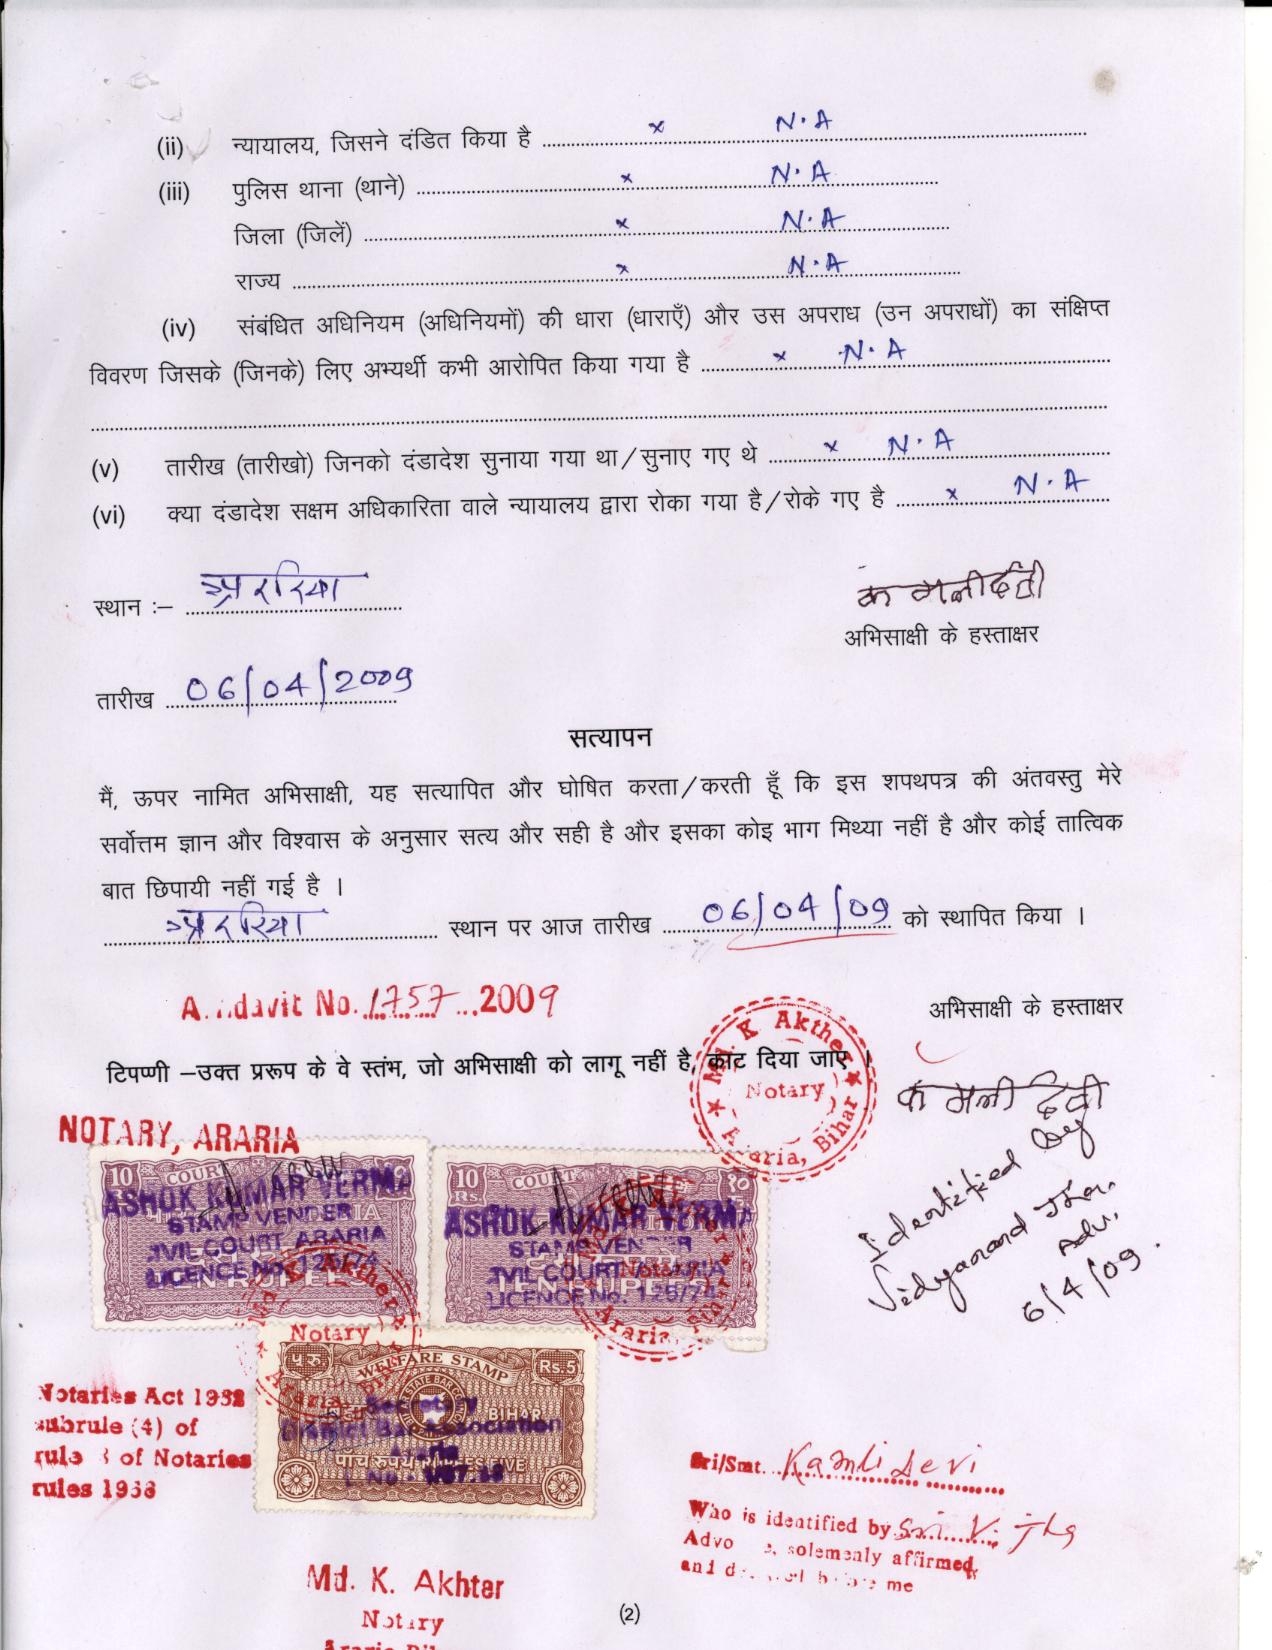 (ii) न्यायालय, जिसने दंडित किया है ........ × N.A
(iii) पुलिस थाना (थाने) ........ × N.A
जिला (जिलें) ........ × N.A
राज्य ........ × N.A
(iv) संबंधित अधिनियम (अधिनियमों) की धारा (धाराएँ) और उस अपराध (उन अपराधों) का संक्षिप्त
विवरण जिसके (जिनके) लिए अभ्यर्थी कभी आरोपित किया गया है ........ × N.A
(v) तारीख (तारीखो) जिनको दंडादेश सुनाया गया था/सुनाए गए थे ........ × N.A
(vi) क्या दंडादेश सक्षम अधिकारिता वाले न्यायालय द्वारा रोका गया है/रोके गए है ........ × N.A
स्थान :– अररिया
कमलीदेवी
अभिसाक्षी के हस्ताक्षर
तारीख 06/04/2009
सत्यापन
मैं, ऊपर नामित अभिसाक्षी, यह सत्यापित और घोषित करता/करती हूँ कि इस शपथपत्र की अंतवस्तु मेरे
सर्वोत्तम ज्ञान और विश्वास के अनुसार सत्य और सही है और इसका कोइ भाग मिथ्या नहीं है और कोई तात्विक
बात छिपायी नहीं गई है ।
अररिया स्थान पर आज तारीख 06/04/09 को स्थापित किया ।
Affidavit No. 1757 2009
अभिसाक्षी के हस्ताक्षर
टिपण्णी –उक्त प्ररूप के वे स्तंभ, जो अभिसाक्षी को लागू नहीं है, काट दिया जाए ।
Md. K Akther
Notary
Araria, Bihar
कमली देवी
Identified by
Vidyanand Jha.
Adv.
6/4/09.
NOTARY, ARARIA
10 COURT
ASHOK KUMAR VERMA
STAMP VENDER
CIVIL COURT ARARIA
LICENCE No. 126/74
10 Rs. COURT १०
ASHOK KUMAR VERMA
STAMP VENDER
CIVIL COURT ARARIA
LICENCE No. 126/74
TEN RUPEES
Notary
Araria
Notary
Araria
५ रु WELFARE STAMP Rs.5
STATE BAR
BIHAR
Secretary
District Bar Association
Araria
पाँच रुपये RUPEES FIVE
Notaries Act 1952
subrule (4) of
rule 8 of Notaries
rules 1956
Sri/Smt. Kamli Devi
Who is identified by Sri V. Jha
Advo solemenly affirmed,
and declared before me
Md. K. Akhtar
Notary
Araria Bihar
(2)